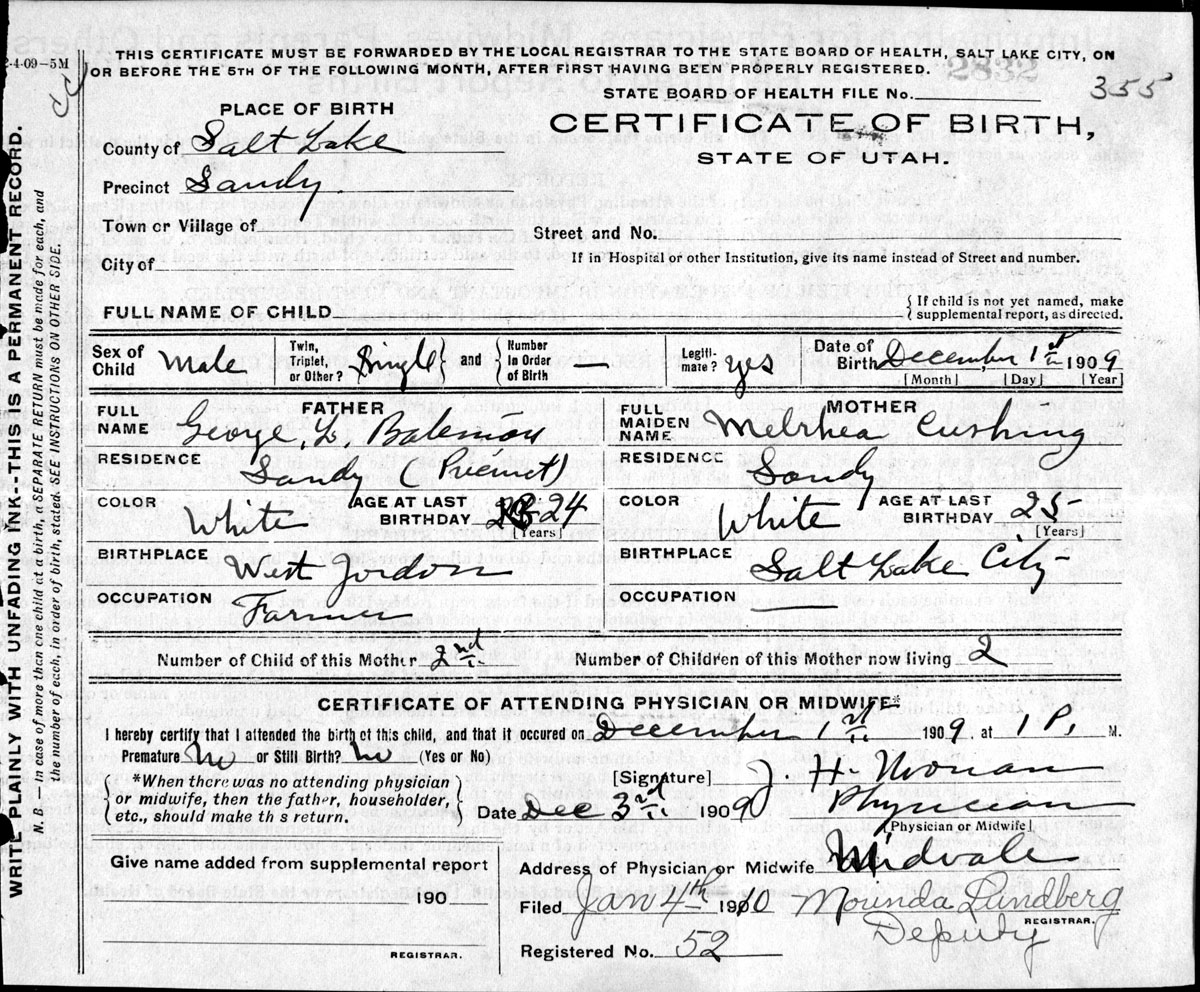 2-4-09–5M
THIS CERTIFICATE MUST BE FORWARDED BY THE LOCAL REGISTRAR TO THE STATE BOARD OF HEALTH, SALT LAKE CITY, ON
OR BEFORE THE 5TH OF THE FOLLOWING MONTH, AFTER FIRST HAVING BEEN PROPERLY REGISTERED.
2832
355
STATE BOARD OF HEALTH FILE No.
CERTIFICATE OF BIRTH,
STATE OF UTAH.
PLACE OF BIRTH
County of Salt Lake
Precinct Sandy.
Town or Village of
Street and No.
City of
If in Hospital or other Institution, give its name instead of Street and number.
FULL NAME OF CHILD
{ If child is not yet named, make
supplemental report, as directed.
Sex of Child Male
Twin, Triplet, or Other? Single } and { Number in Order of Birth —
Legiti- mate? yes
Date of Birth December 1st 1909
[Month] [Day] [Year]
FATHER
FULL NAME George L. Bateman
RESIDENCE Sandy (Precinct)
COLOR White AGE AT LAST BIRTHDAY 24
[Years]
BIRTHPLACE West Jordon
OCCUPATION Farmer
MOTHER
FULL MAIDEN NAME Melrhea Cushing
RESIDENCE Sandy
COLOR White AGE AT LAST BIRTHDAY 25
[Years]
BIRTHPLACE Salt Lake City
OCCUPATION
Number of Child of this Mother 2nd Number of Children of this Mother now living 2
CERTIFICATE OF ATTENDING PHYSICIAN OR MIDWIFE*
I hereby certify that I attended the birth of this child, and that it occured on December 1st 1909, at 1 P, M.
Premature No or Still Birth? No (Yes or No)
*When there was no attending physician
or midwife, then the father, householder,
etc., should make th s return.
[Signature] J. H.
Date Dec 3rd 1909 Physician
[Physician or Midwife]
Give name added from supplemental report
190
REGISTRAR.
Address of Physician or Midwife Midvale
Filed Jan 4th 1910 Mounda Lundberg
REGISTRAR.
Deputy
Registered No. 52
WRITE PLAINLY WITH UNFADING INK--THIS IS A PERMANENT RECORD.
N. B.—In case of more than one child at a birth, a SEPARATE RETURN must be made for each, and
the number of each, in order of birth, stated. SEE INSTRUCTIONS ON OTHER SIDE.